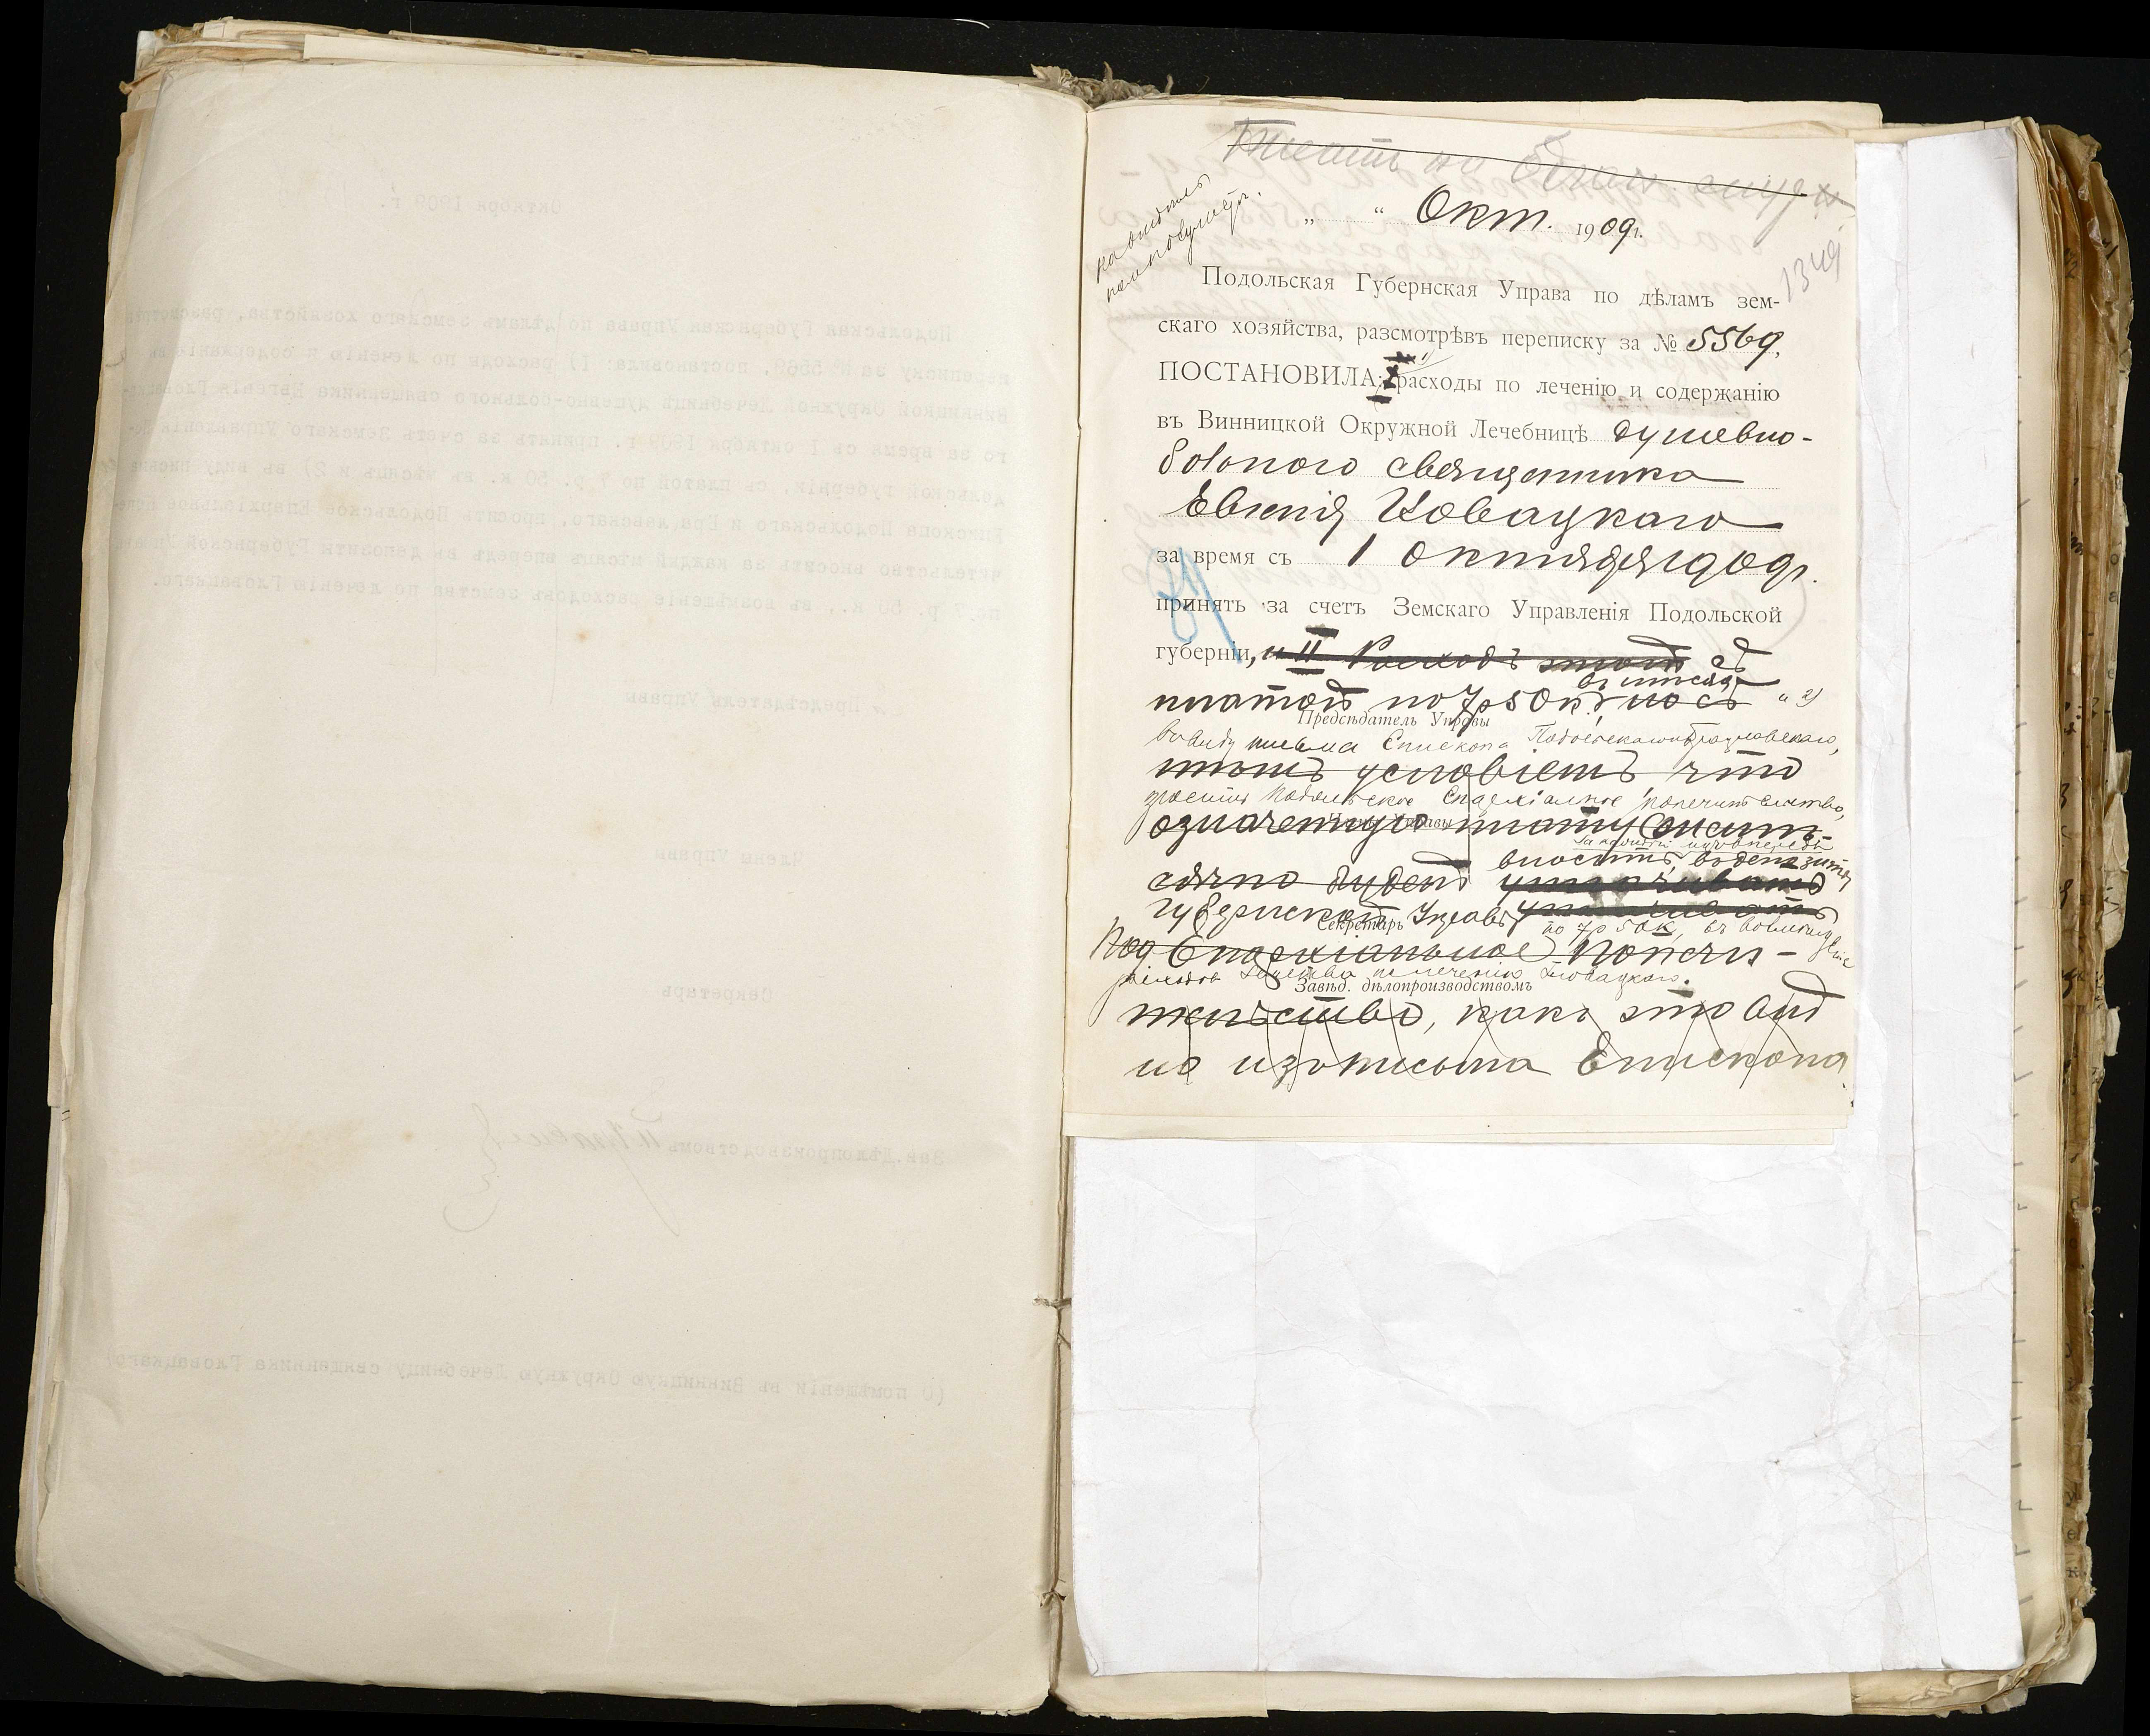 „ “ Окт. 1909 г.
1349
Подольская Губернская Управа по дѣламъ зем-
скаго хозяйства, разсмотрѣвъ переписку за № 5569,
ПОСТАНОВИЛА: 1) расходы по леченію и содержанію
въ Винницкой Окружной Лечебницѣ душевно-
больного священника
Евгенія Гловацкаго
за время съ 1 октября 1909 г.
принять за счетъ Земскаго Управленія Подольской
губерніи, и II Расходъ этотъ съ
въ мѣсяцъ
платой по 7 р 50 к. но съ и 2)
Предсѣдатель Управы
въ виду письма Епископа Подольскаго и Брацлавскаго,
тѣмъ условіемъ что
просить Подольское Епархіальное попечительство,
Члены Управы
означенную плату ежемѣ-
за каждый мѣс. впередъ
вносить въ депозиты
сячно будетъ уплачивать
Губернской Управы уплачивать
Секретарь
по 7 р 50 к., въ возмѣщеніе
Под Епархіальное Попечи-
расходовъ земства по леченію Гловацкаго.
Завѣд. дѣлопроизводствомъ
тельство, какъ это вид
но изъ письма Епископа
Октября 1909 г.
Подольская Губернская Управа по дѣламъ земскаго хозяйства, разсмотрѣвъ
переписку за № 5569, постановила: 1) расходы по леченію и содержанію въ
Винницкой Окружной Лечебницѣ душевно-больного священника Евгенія Гловацка-
го за время съ 1 октября 1909 г. принять за счетъ Земскаго Управленія По-
дольской губерніи, съ платой по 7 р. 50 к. въ мѣсяцъ и 2) въ виду письма
Епископа Подольскаго и Брацлавскаго, просить Подольское Епархіальное попе-
чительство вносить за каждый мѣсяцъ впередъ въ депозиты Губернской Управы
по 7 р. 50 к., въ возмѣщеніе расходовъ земства по леченію Гловацкаго.
Предсѣдатель Управы
Члены Управы
Секретарь
Зав. Дѣлопроизводствомъ
(О помѣщеніи въ Винницкую Окружную Лечебницу священника Гловацкаго)